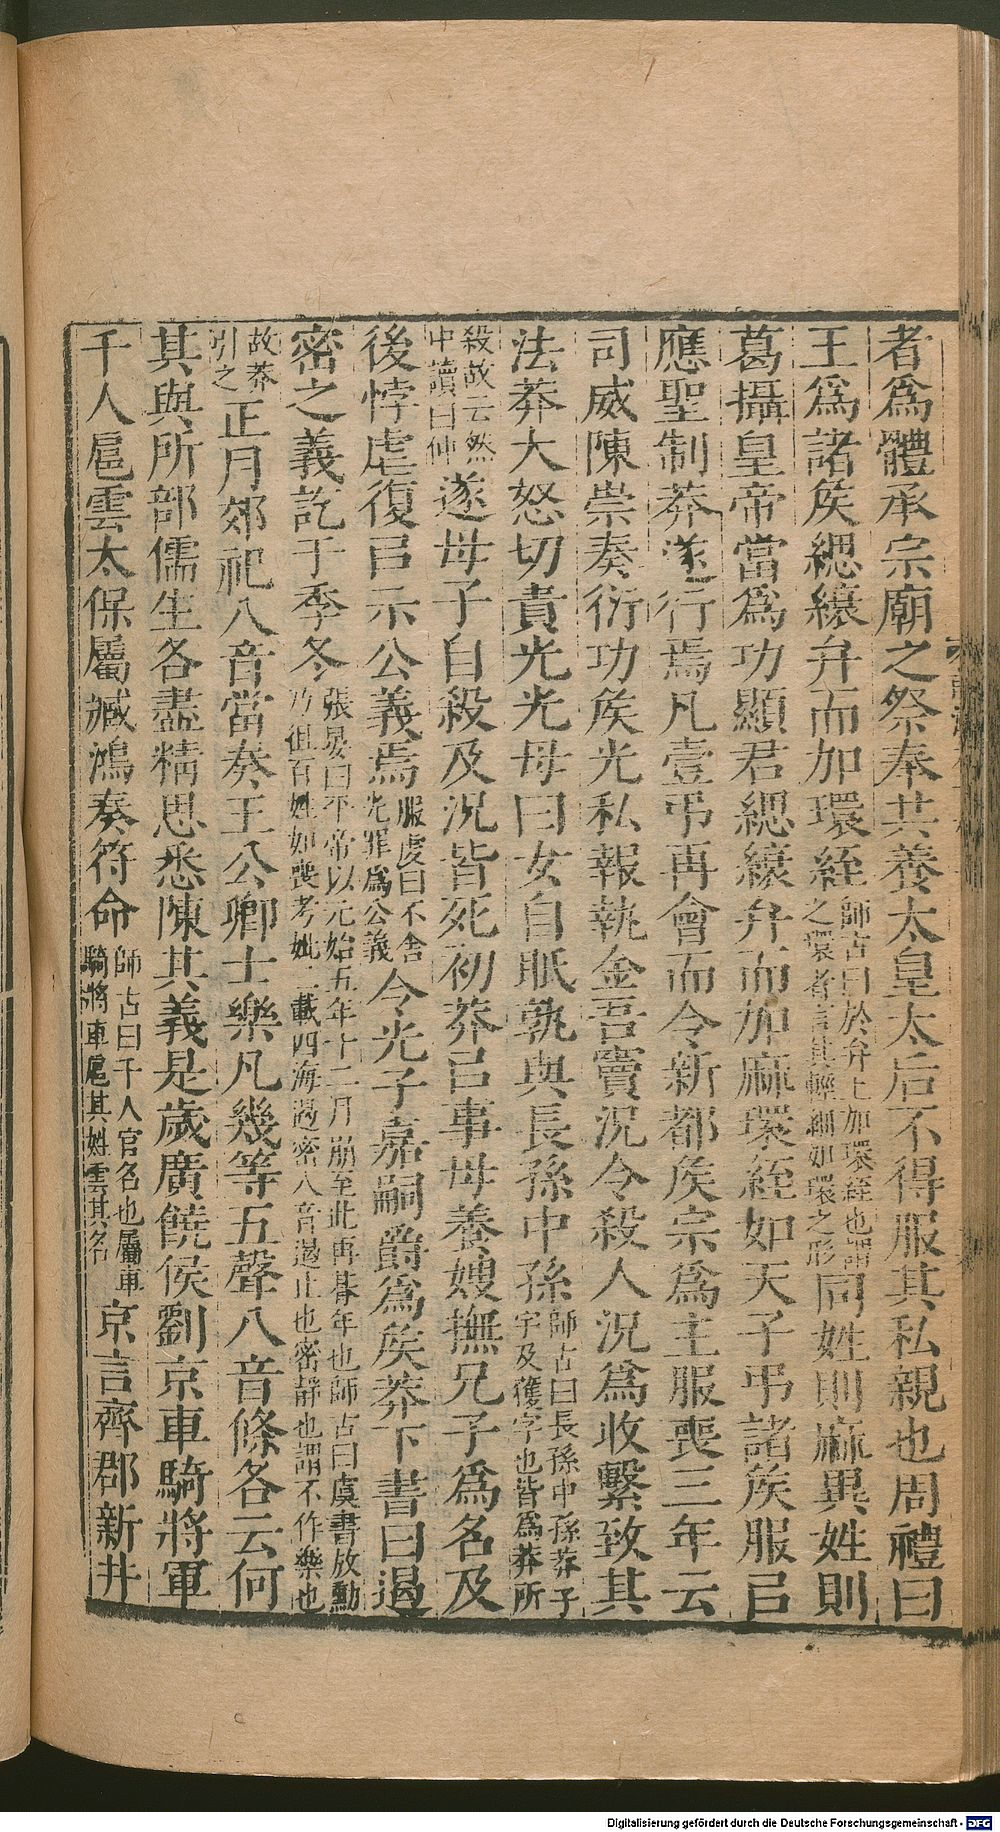 者爲體承宗廟之祭奉共養太皇太后不得服其私親也周禮曰
王爲諸矦緦縗弁而加環絰師古曰於弁上加環絰也謂之環者言其輕細如環之形同姓則麻異姓則
葛攝皇帝當爲功顯君緦縗弁而加麻環絰如天子弔諸矦服㠯
應聖制莽遂行焉凡壹弔再會而令新都矦宗爲主服喪三年云
司威陳崇奏衍功矦光私報執金吾竇況令殺人況爲收繫致其
法莽大怒切責光光母曰女自眡孰與長孫中孫師古曰長孫中孫莽子宇及獲字也皆爲莽所
殺故云然中讀曰仲遂母子自殺及況皆死初莽㠯事母養嫂撫兄子爲名及
後悖虐復㠯示公義焉服虔曰不舍光罪爲公義令光子嘉嗣爵爲矦莽下書曰遏
密之義訖于季冬張晏曰平帝以元始五年十二月崩至此再朞年也師古曰虞書放勳乃徂百姓如喪考妣三載四海遏密八音遏止也密靜也謂不作樂也
故莽引之正月郊祀八音當奏王公卿士樂凡幾等五聲八音條各云何
其與所部儒生各盡精思悉陳其義是歲廣饒侯劉京車騎將軍
千人扈雲太保屬臧鴻奏符命師古曰千人官名也屬車騎將軍扈其姓雲其名京言齊郡新井
Digitalisierung gefördert durch die Deutsche Forschungsgemeinschaft - DFG